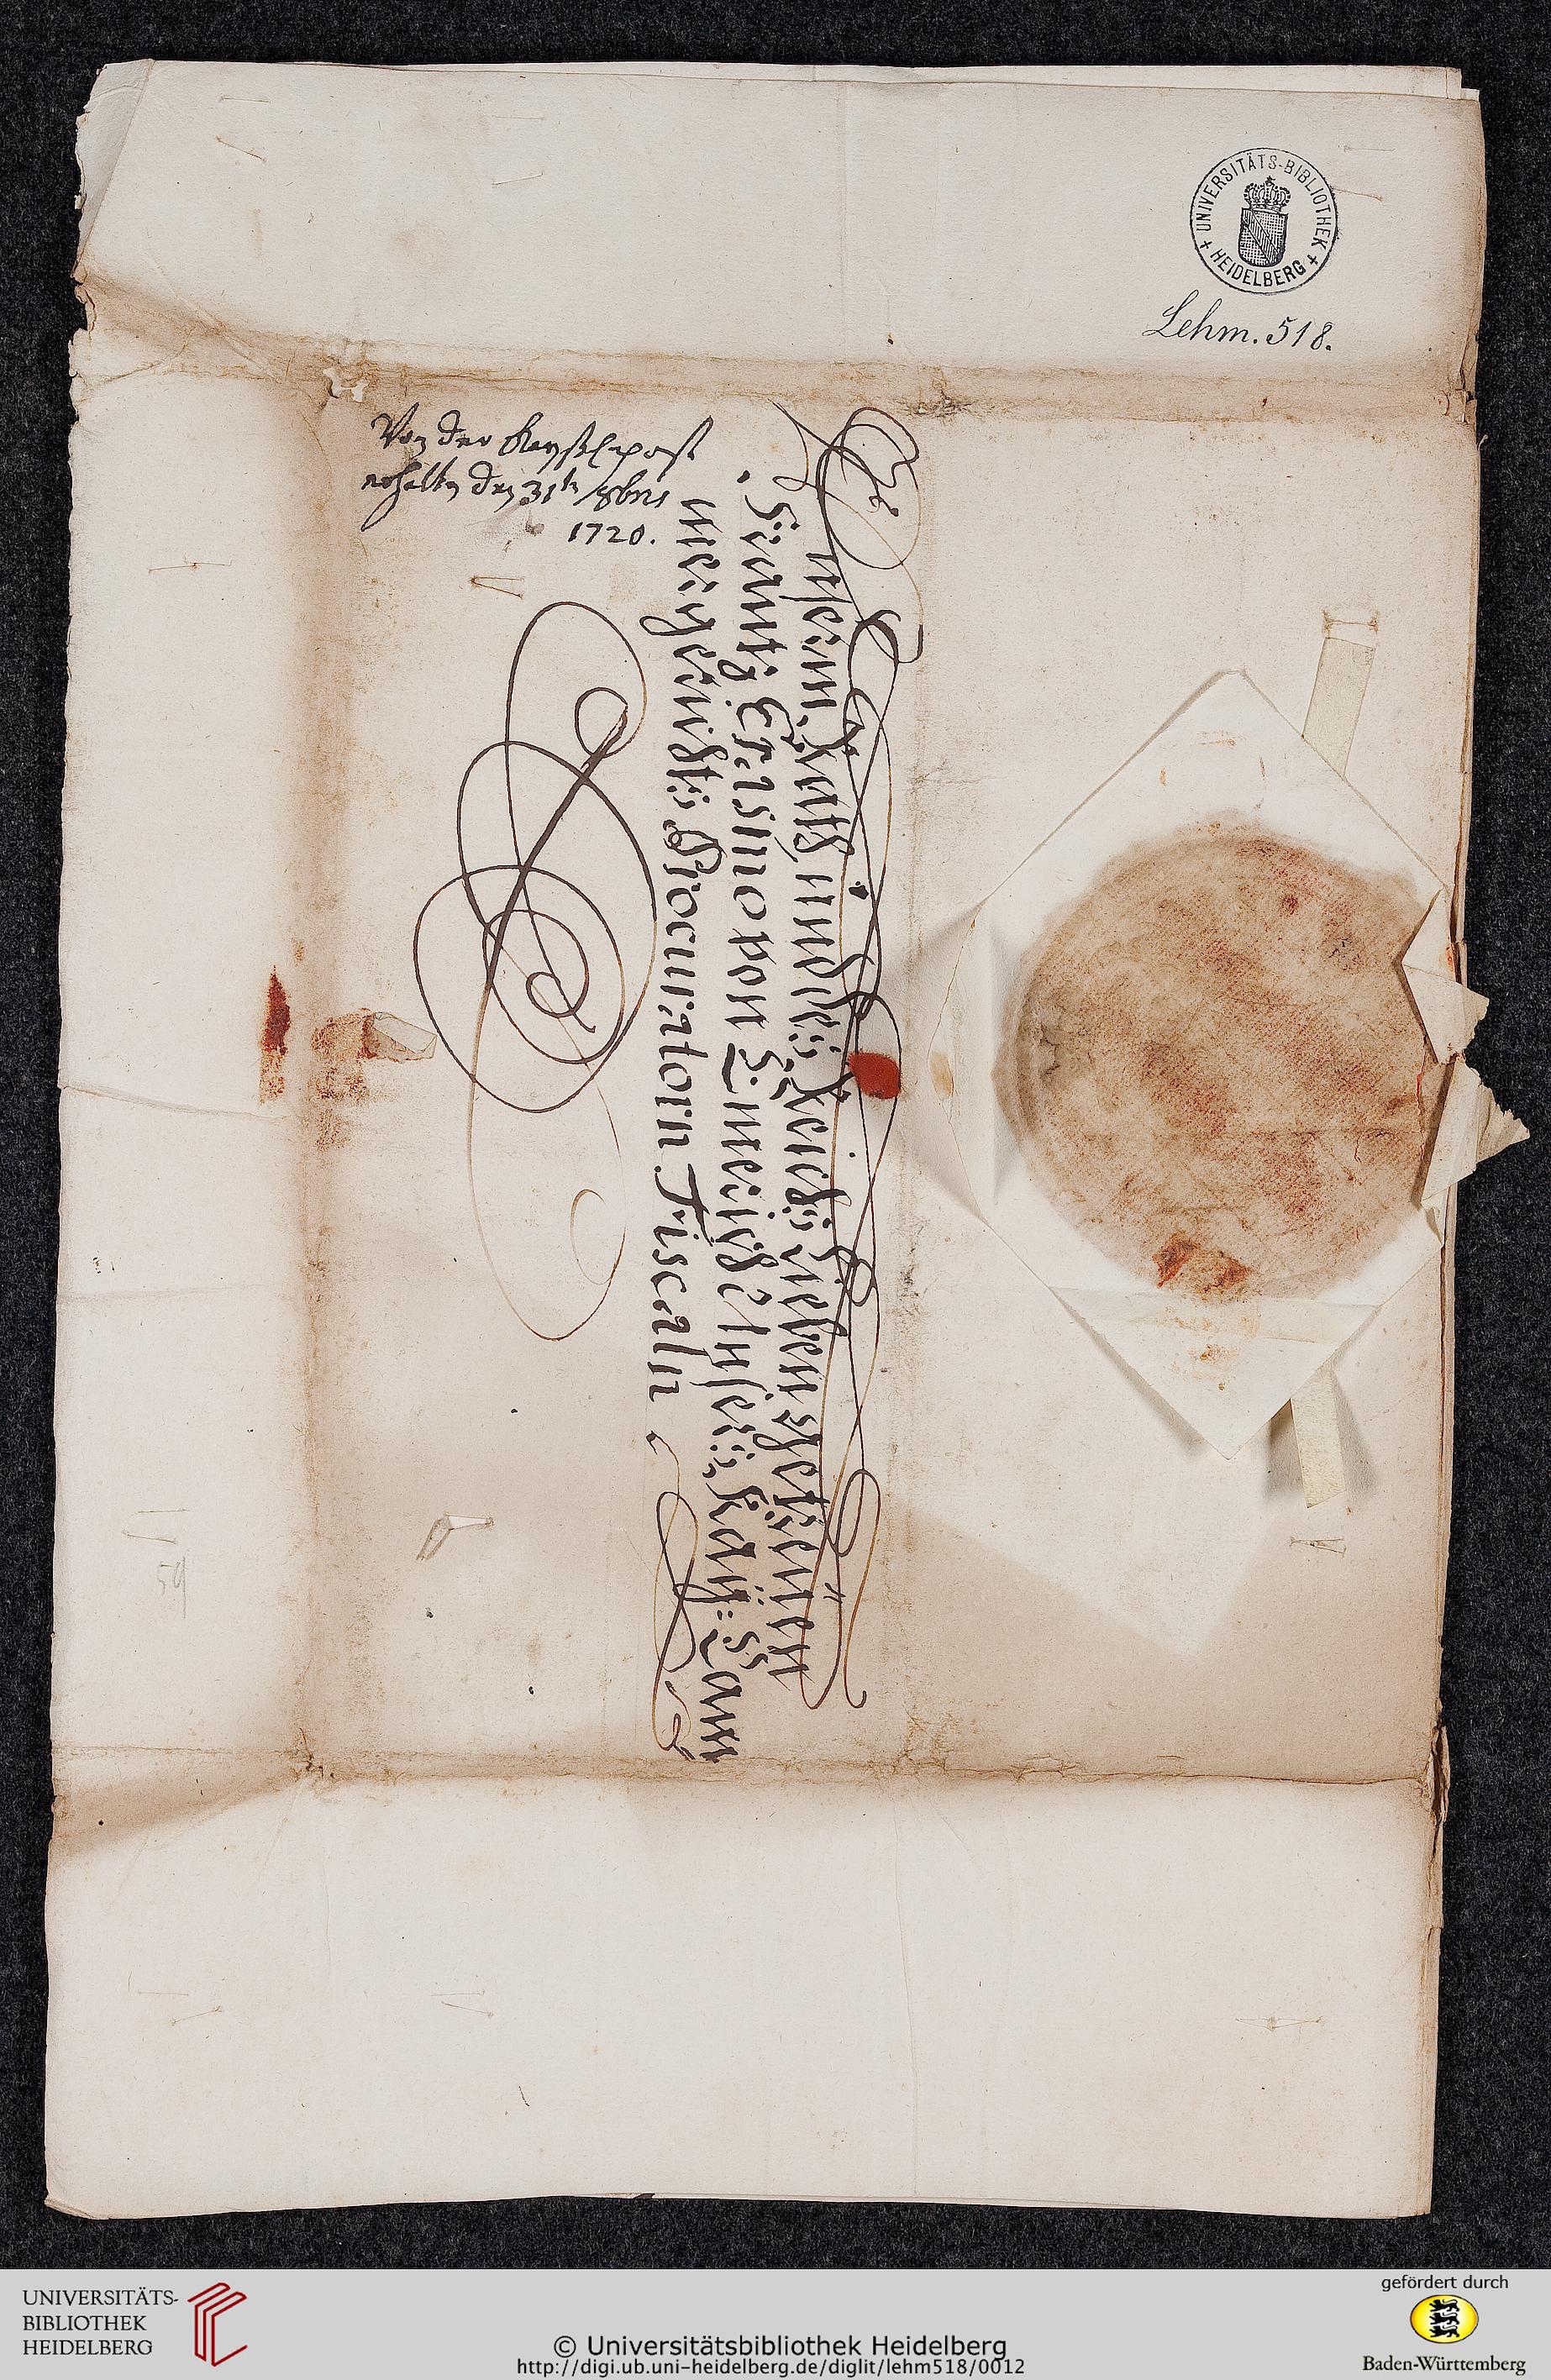 UNIVERSITÄTS-BIBLIOTHEK
+ HEIDELBERG +
Lehm. 518.
Von der
erhalten den 31tn 8bris
1720.
Unserm, Raths, und des Reichs lieben getreuen
Frantz Erasmo von Emerich Unsers Kay: Cam
mergerichts Procuratorn Fiscaln
59
UNIVERSITÄTS-
BIBLIOTHEK
HEIDELBERG
© Universitätsbibliothek Heidelberg
http://digi.ub.uni-heidelberg.de/diglit/lehm518/0012
gefördert durch
Baden-Württemberg